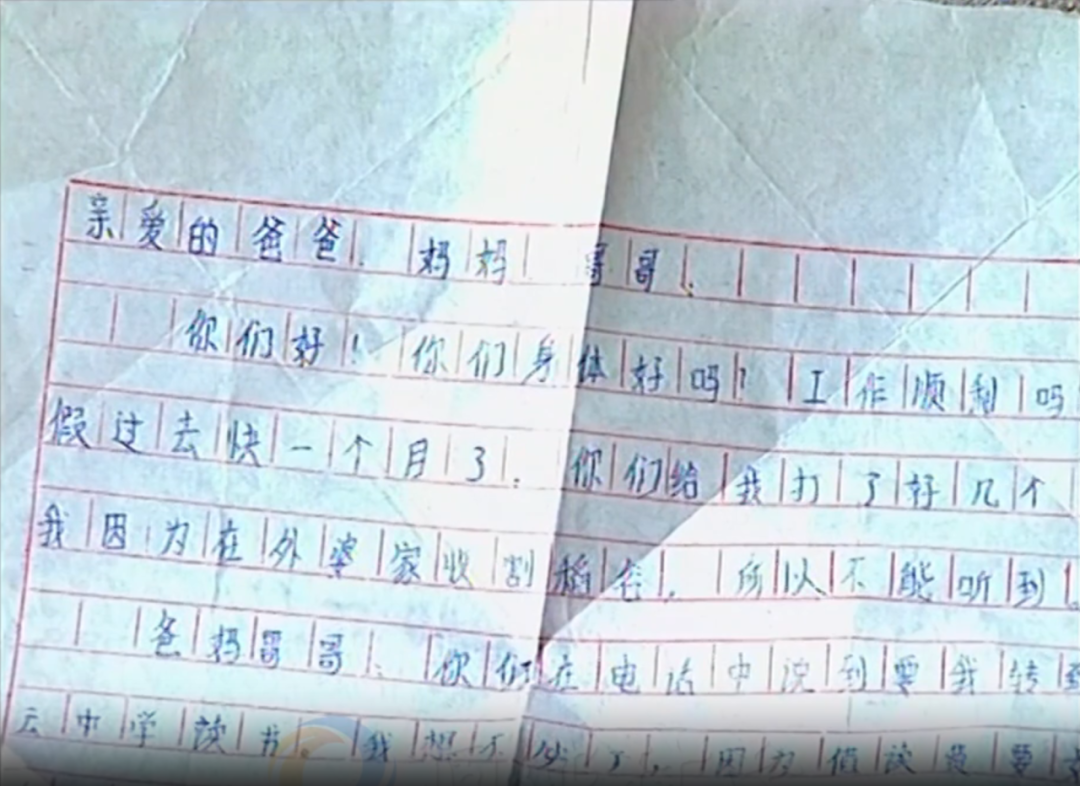 亲爱的爸爸、妈妈、哥哥:
你们好!你们身体好吗?工作顺利吗
假过去快一个月了.你们给我打了好几个
我因为在外婆家收割稻谷,所以不能听到
爸妈哥哥:你们在电话中说到要我转到
云中学读书.我想不必了,因为借读费要